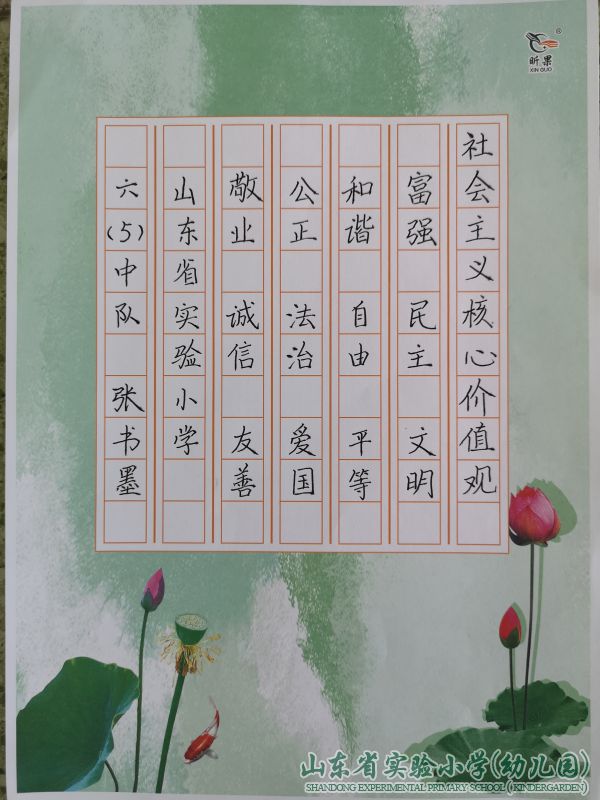 昕果
XIN GUO
社会主义核心价值观
富强 民主 文明
和谐 自由 平等
公正 法治 爱国
敬业 诚信 友善
山东省实验小学
六(5)中队 张书墨
山东省实验小学(幼儿园)
SHANDONG EXPERIMENTAL PRIMARY SCHOOL (KINDERGARDEN)